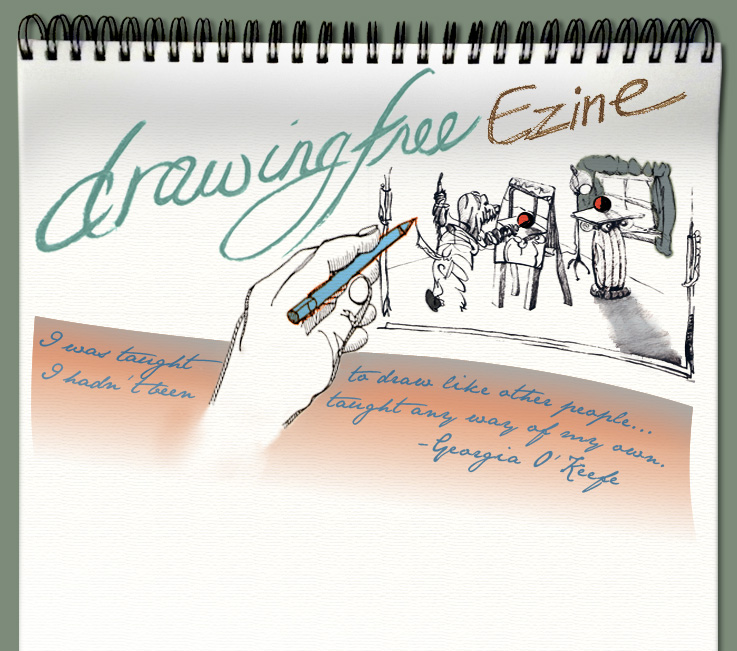 drawingfree Ezine
I was taught to draw like other people...
I hadn't been taught any way of my own.
-Georgia O'Keefe